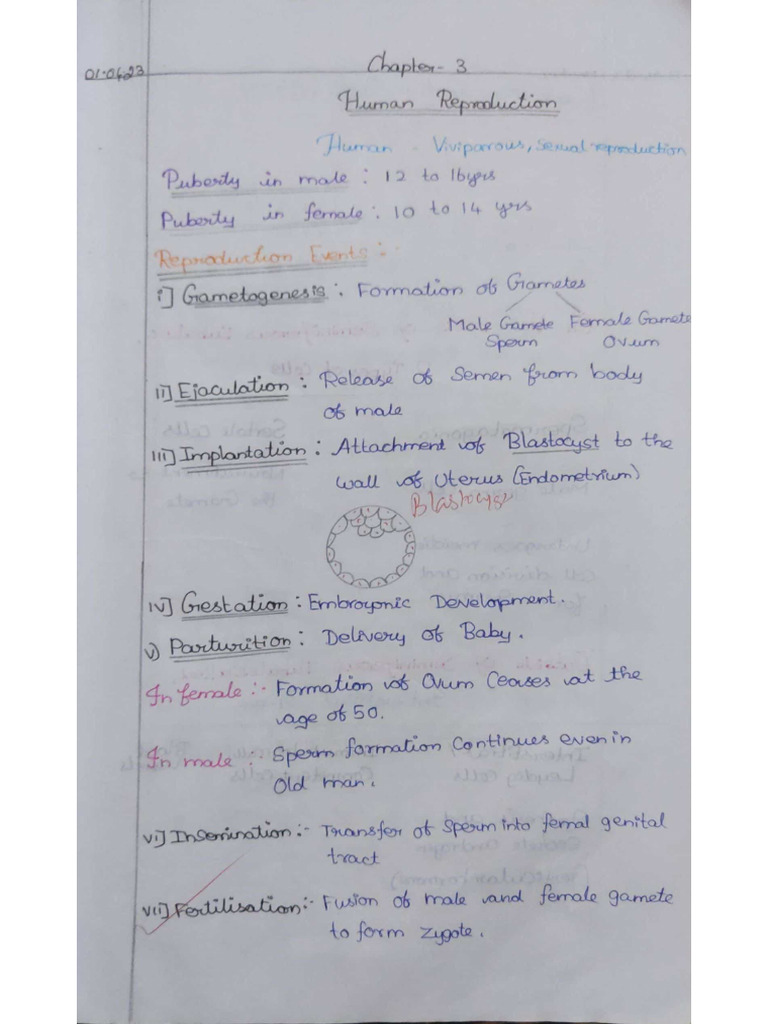 01.04.23
Chapter - 3
Human Reproduction
Human - Viviparous, Sexual reproduction
Puberty in male : 12 to 16yrs
Puberty in female : 10 to 14 yrs
Reproduction Events :-
i] Gametogenesis : Formation of Gametes
Male Gamete Female Gamete
Sperm Ovum
ii] Ejaculation : Release of Semen from body
of male
iii] Implantation : Attachment of Blastocyst to the
wall of Uterus (Endometrium)
Blastocyst
iv] Gestation : Embroyonic Development.
v] Parturition : Delivery of Baby.
In female :- Formation of Ovum Ceases at the
age of 50.
In male :- Sperm formation Continues even in
Old man.
vi] Insemination :- Transfer of Sperm into femal genital
tract
vii] Fertilisation :- Fusion of male and female gamete
to form zygote.